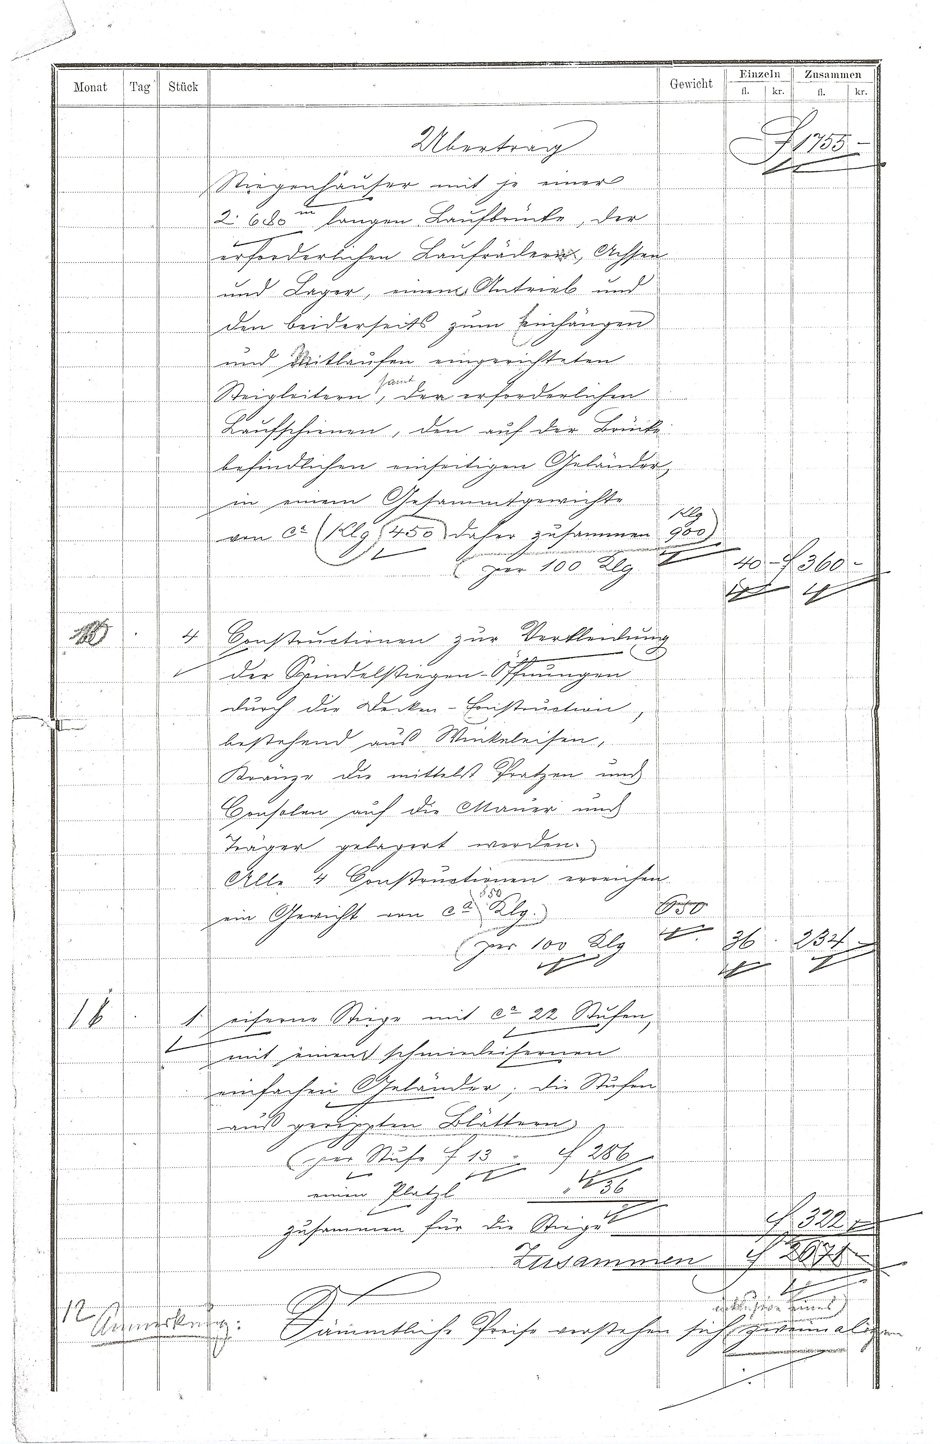 Monat Tag Stück Gewicht Einzeln Zusammen
fl. kr. fl. kr.
Übertrag f 1755 –
Stiegenhäuser mit je einer
2. 680 m langen Laufbrücke, der
erforderlichen Laufräder, Achsen
und Lager, einem Antrieb und
den beiderseits zum Einhängen
und Mitlaufen eingerichteten
samt
Steigleitern, der erforderlichen
Laufschienen, den auf der Brücke
befindlichen einseitigen Geländer,
in einem Gesammtgewichte
Klg
von ca (Klg 450) daher zusammen 900
(per 100 Klg 40 – f 360 –
4 Constructionen zur Verkleidung
der Spindelstiegen-Öffnungen
durch die Decken-Construction,
bestehend aus Winkeleisen,
Kränze die mittelst Pratzen und
Consolen auf die Mauer und
Träger gelagert werden.
Alle 4 Constructionen erreichen
ein Gewicht von ca Klg. 650
(per 100 Klg 36 . 234 –
16 . 1 eiserne Stiege mit ca 22 Stufen,
mit einem schmiedeisernen
einfachen Geländer, die Stufen
aus gerippten Blättern
(per Stufe f 13 – f 286
einen Platzl " 36
zusammen für die Stiege f 322 –
Zusammen f 2671 –
inklusive eines
12 Anmerkung: Sämmtliche Preise verstehen sich zweimaligen